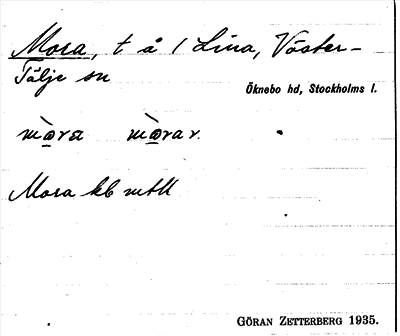 Mora, t å 1 Lina, Väster-
Tälje sn
Öknebo hd, Stockholms l.
mò̲ra mò̲rar.
Mora kb mtll
GÖRAN ZETTERBERG 1935.